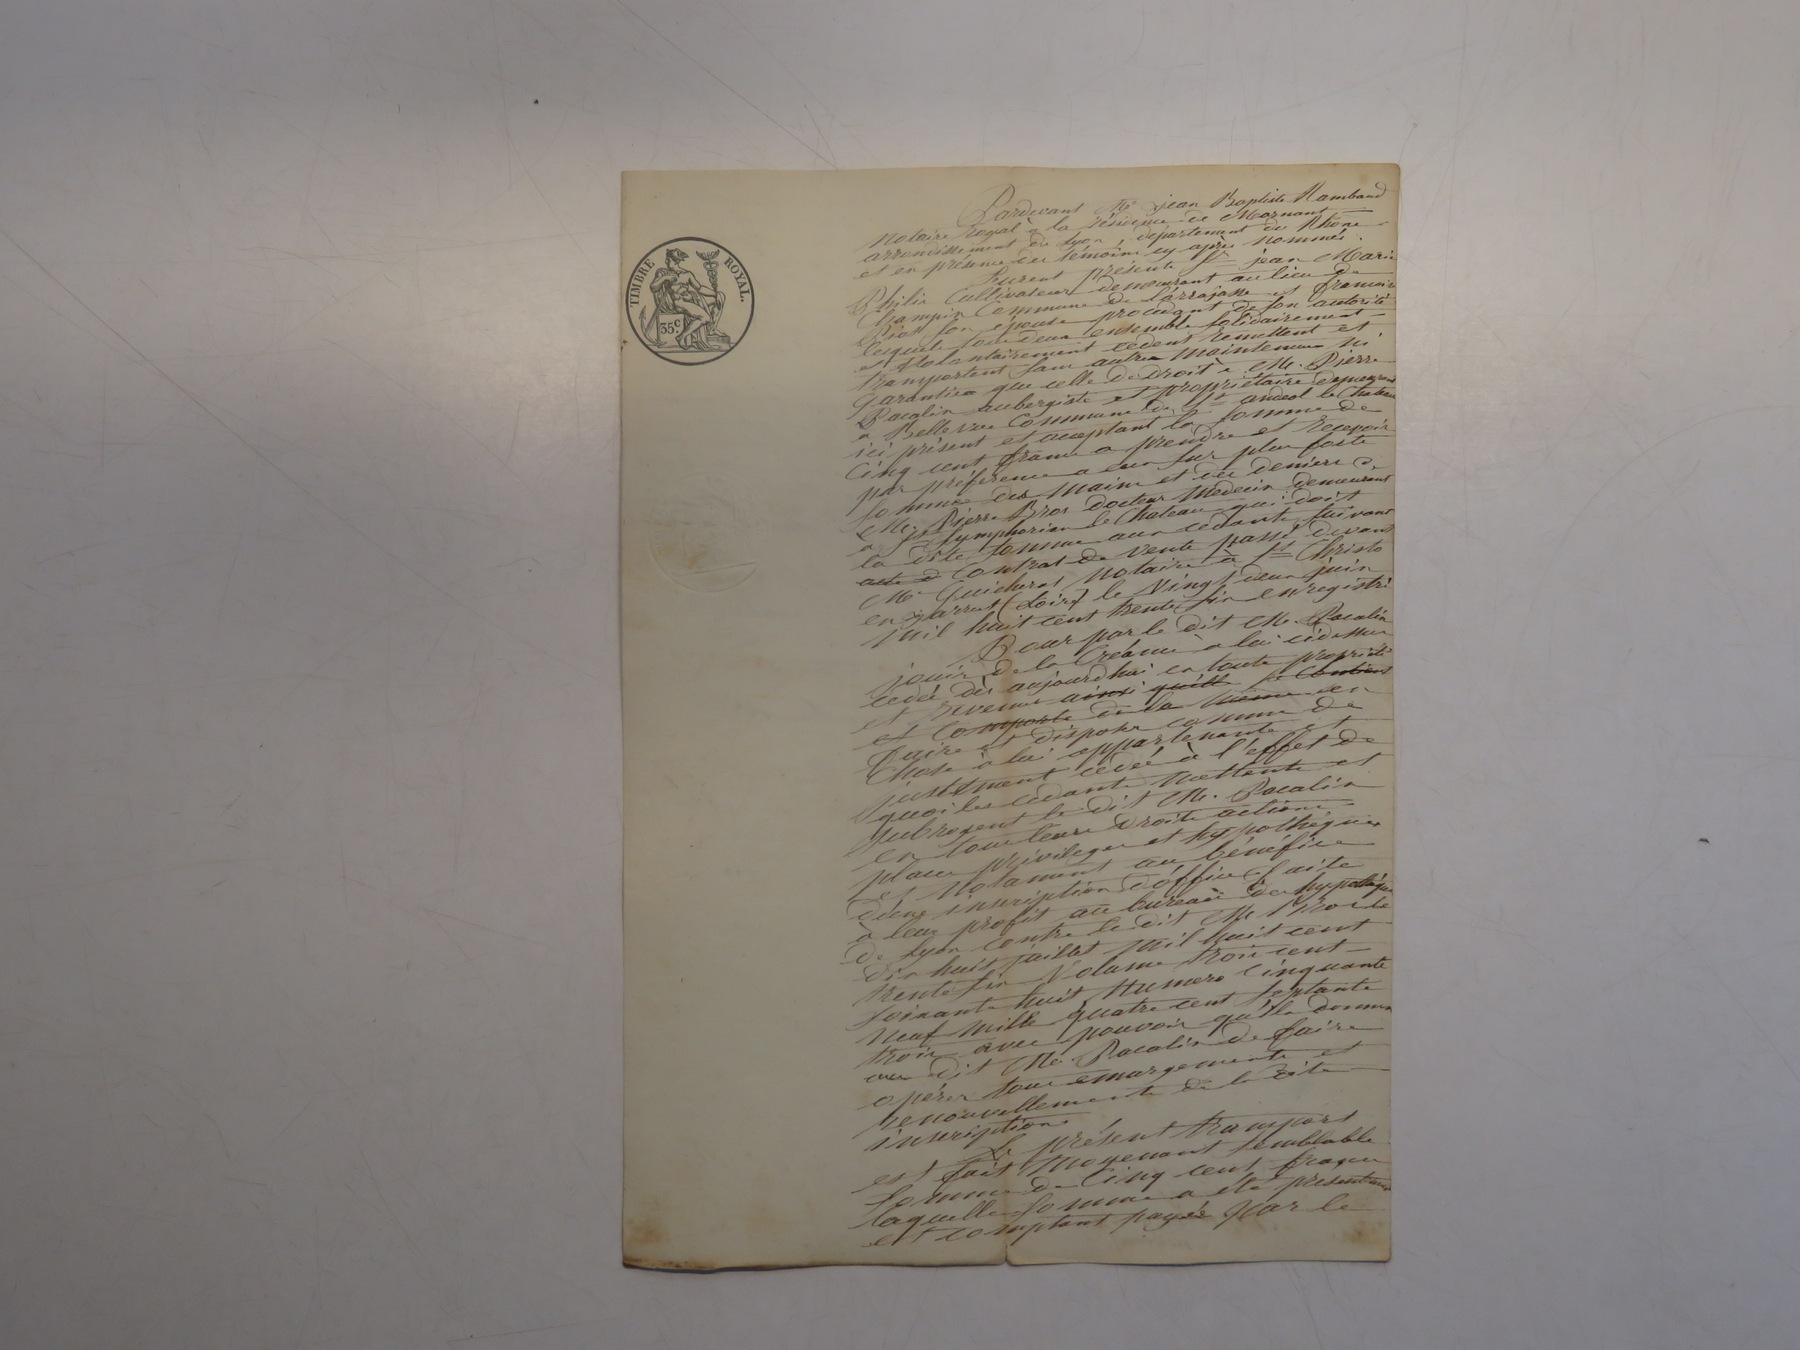 TIMBRE ROYAL.
35c.
Pardevant Me jean Baptiste Rambaud
Notaire Royal à la résidence de Mornant
arrondissement de Lyon, département du Rhône
et en présence des témoins cy après nommés.
Furent présents Sr jean Marie
Philis Cultivateur demeurant au lieu de
Champin Commune de Larrajasse et francoise
son épouse procédant de son autorité
lesquels tous deux ensemble solidairement
et Volontairement cèdent remettent et
transportent sans autre maintenue ni
garantie que celle de Droit à Mr. Pierre
Pacalin aubergiste et propriétaire demeurant
a Bellevue Commune de St andeol le Chateau
ici présent et acceptant la somme de
Cinq cent francs a prendre et recevoir
par préférence a eux sur plus forte
somme des mains et des deniers de
Mr Pierre Bros docteur Médecin demeurant
a St Symphorien le Chateau qui doit
la dite somme aux cédants suivant
acte d Contrat de Vente passé devant
Me Guicherat Notaire à St Christo
en Jarret (Loire) le Vingt deux juin
mil huit cent trente six enregistré
Pour par le dit Mr. Pacalin
jouir de la Créance à lui cidessus
cédée dès aujourdhui en toute propriété
et Revenus ainsi quelle se Contient
et Comporte de la même en
faire et disposer comme de
Chose à lui appartenante et
justement cédée à l'effet de
quoi les cédants mettent et
Subrogent le dit Mr. Pacalin
en tous leurs Droits actions
places privileges et hypothéques
et Notament au bénéfice
d'une inscription d'office faite
à leur profit au bureau des hypothéques
De Lyon contre le dit Mr Bros le
dix huit juillet mil huit cent
trente six Volume trois cent
soixante huit Numero Cinquante
Neuf mille quatre cent septante
trois avec pouvoir qu'ils donnent
au dit Mr Pacalin de faire
opérer tous emargements et
renouvellements de la dite
inscription
Le présent transport
est fait Moyenant semblable
somme de Cinq cent francs
laquelle somme a été présentement
et comptant payée par le